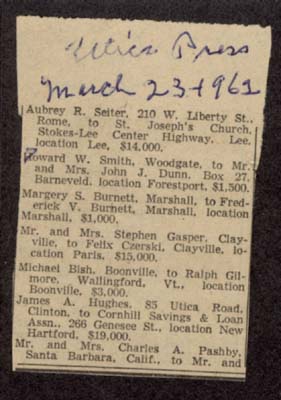 Utica Press
March 23 1961
Aubrey R. Seiter, 210 W. Liberty St.,
Rome, to St. Joseph's Church,
Stokes-Lee Center Highway, Lee,
location Lee, $14,000.
Howard W. Smith, Woodgate, to Mr.
and Mrs. John J. Dunn, Box 27,
Barneveld, location Forestport, $1,500.
Margery S. Burnett, Marshall, to Fred-
erick V. Burnett, Marshall, location
Marshall, $1,000.
Mr. and Mrs. Stephen Gasper, Clay-
ville, to Felix Czerski, Clayville, lo-
cation Paris, $15,000.
Michael Bish, Boonville, to Ralph Gil-
more, Wallingford, Vt., location
Boonville, $3,000.
James A. Hughes, 85 Utica Road,
Clinton, to Cornhill Savings & Loan
Assn., 266 Genesee St., location New
Hartford, $19,000.
Mr. and Mrs. Charles A. Pashby,
Santa Barbara, Calif., to Mr. and